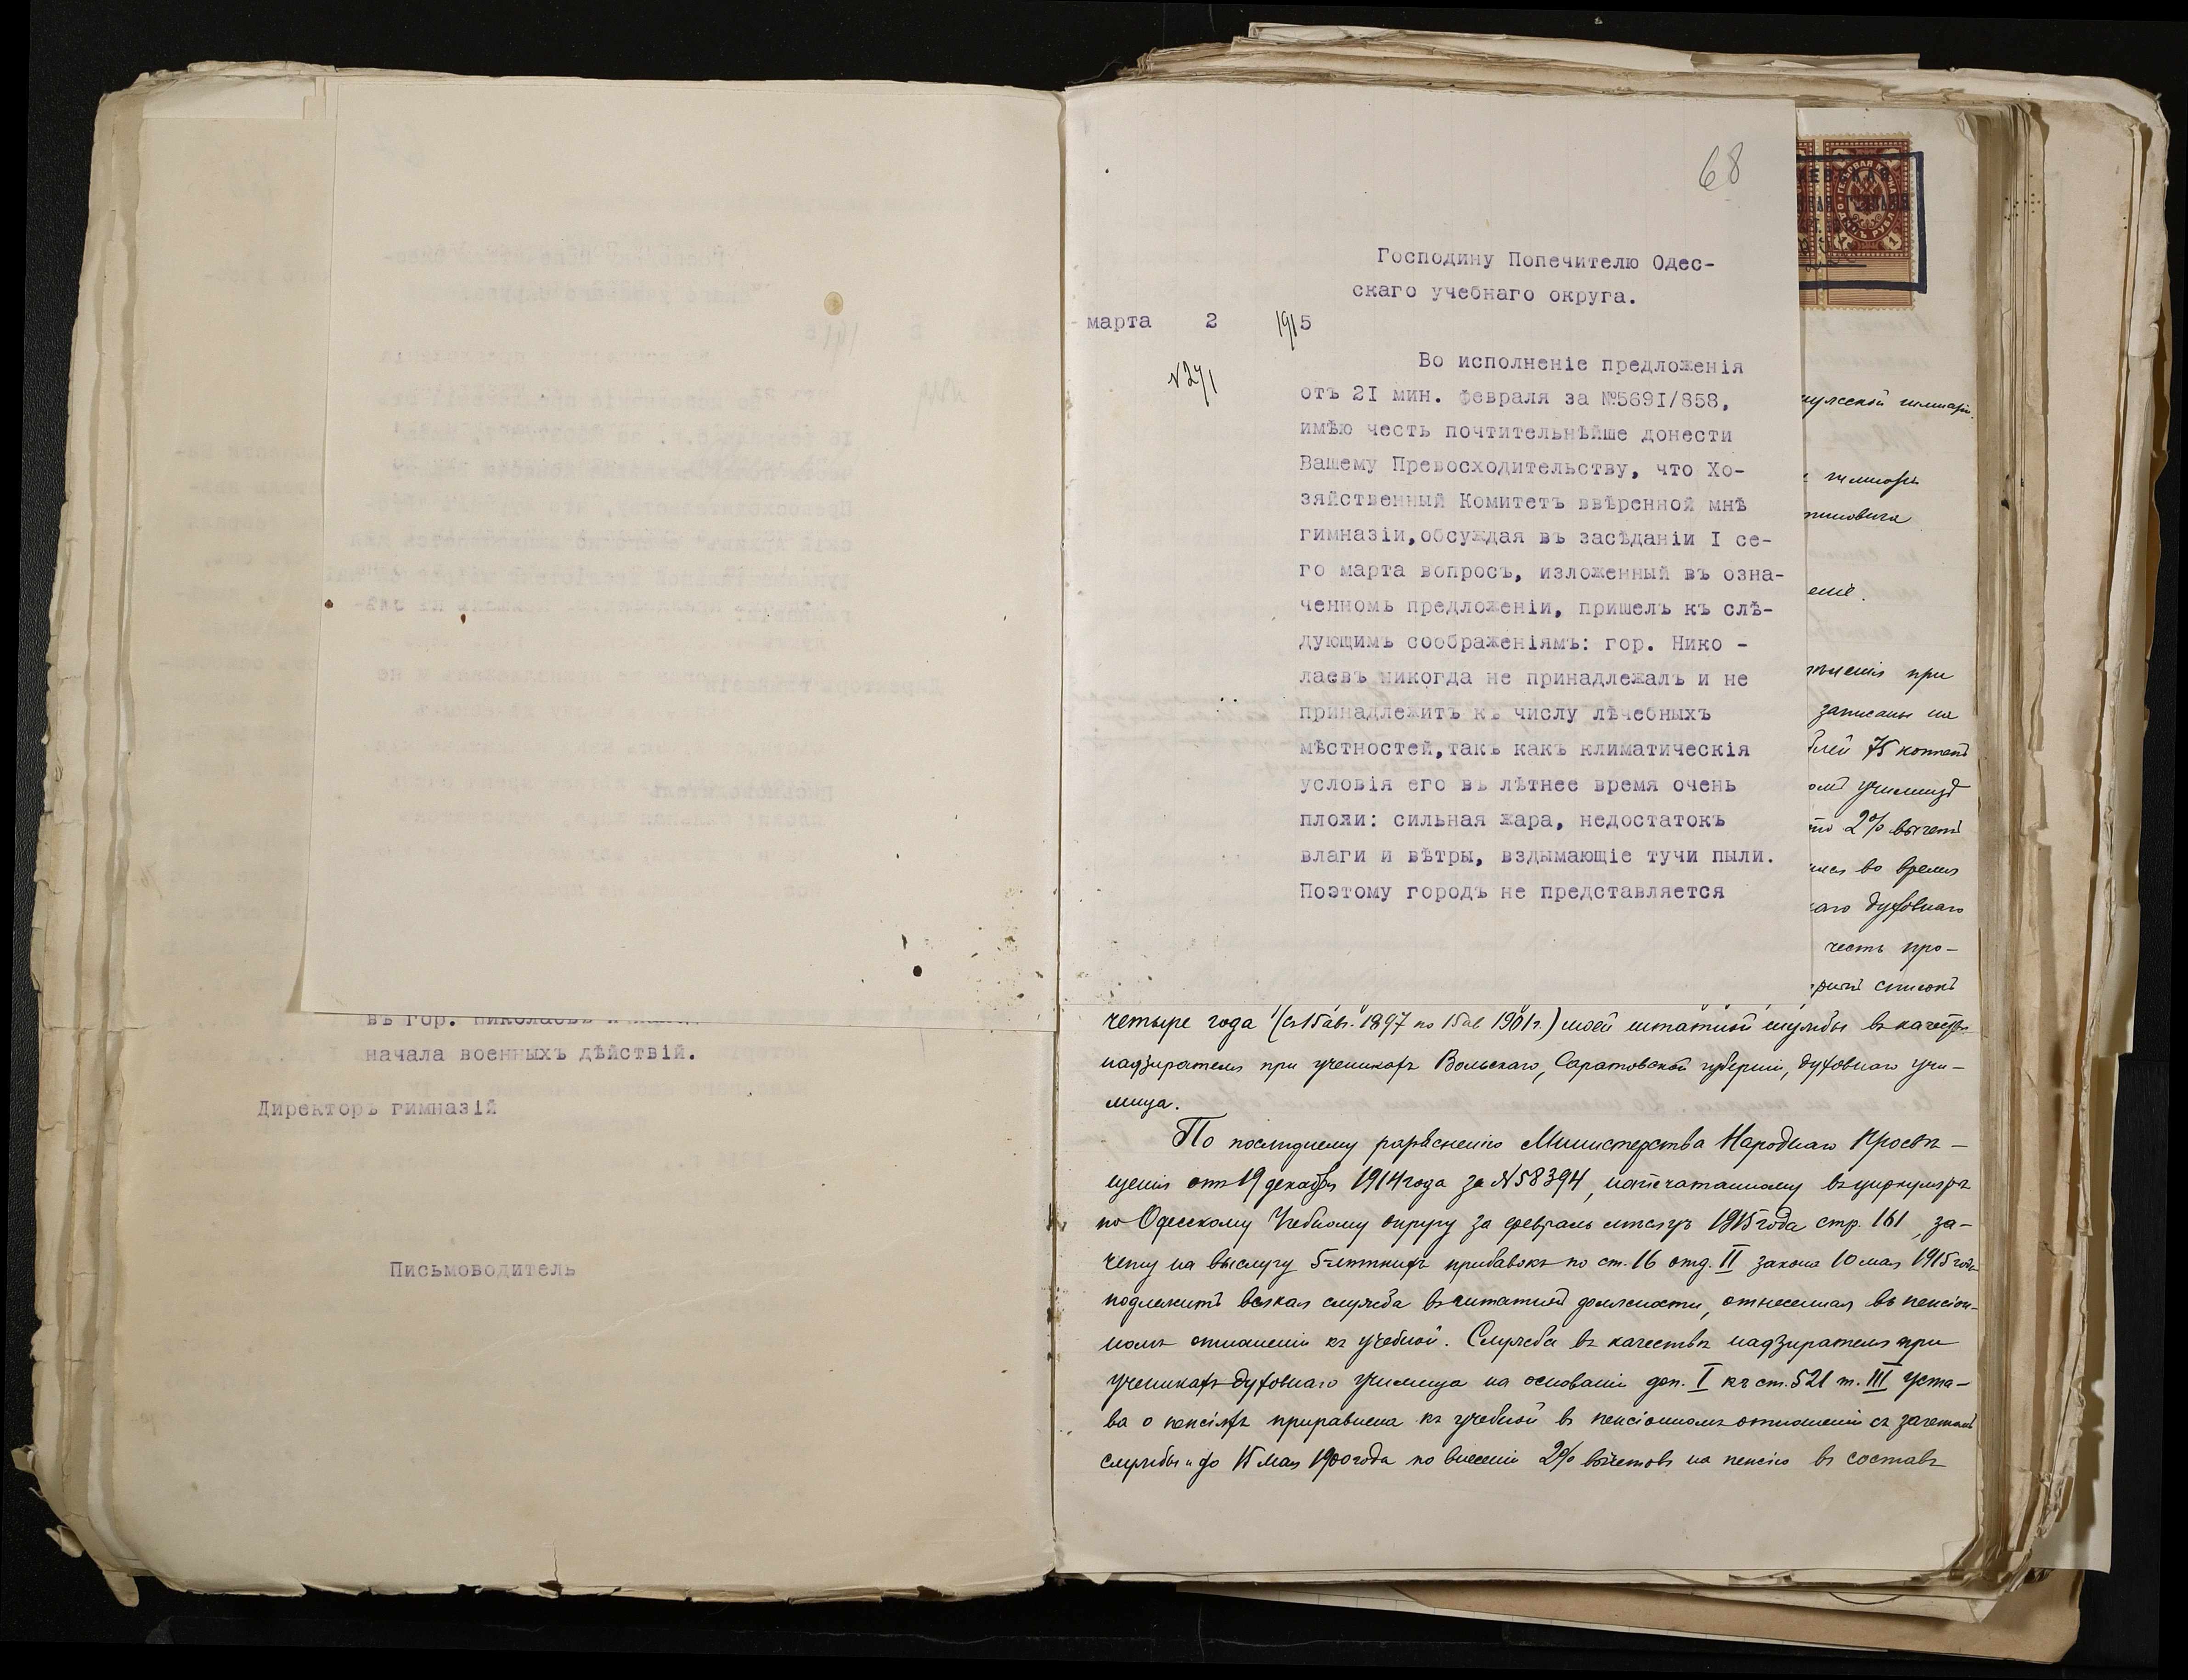 въ гор. Николаевъ
начала военныхъ дѣйствій.
Директоръ гимназій
Письмоводитель
68
Господину Попечителю Одес-
скаго учебнаго округа.
марта 2 1915
№271
Во исполненіе предложенія
отъ 2I мин. февраля за №569I/858,
имѣю честь почтительнѣйше донести
Вашему Превосходительству, что Хо-
зяйственный Комитетъ ввѣренной мнѣ
гимназіи,обсуждая въ засѣданіи I се-
го марта вопросъ, изложенный въ озна-
ченномъ предложеніи, пришелъ къ слѣ-
дующимъ соображеніямъ: гор. Нико -
лаевъ никогда не принадлежалъ и не
принадлежитъ къ числу лѣчебныхъ
мѣстностей,такъ какъ климатическія
условія его въ лѣтнее время очень
плохи: сильная жара, недостатокъ
влаги и вѣтры, вздымающіе тучи пыли.
Поэтому городъ не представляется
при
записаны на
75 копеекъ
2% вычетъ
во время
духовнаго
честь про-
списокъ
четыре года (съ 15 авг. 1897 по 15 ав 1901г.) моей штатной службы въ качествѣ
надзирателя при ученикахъ Вольскаго, Саратовской губерніи, духовнаго учи-
лища.
По послѣднему разъясненію Министерства Народнаго Просвѣ-
щенія отъ 19 декабря 1914 года за №58394, напечатанному въ циркулярѣ
по Одесскому Учебному округу за февраль мѣсяцъ 1915 года стр. 161, за-
чету на выслугу 5-лѣтнихъ прибавокъ по ст. 16 отд. II закона 10 мая 1915 года
подлежитъ всякая служба въ штатной должности, отнесенная въ пенсіон-
номъ отношеніи къ учебной. Служба въ качествѣ надзирателя при
ученикахъ духовнаго училища на основаніи доп. I къ ст. 521 т. III Уста-
ва о пенсіяхъ приравнена къ учебной въ пенсіонномъ отношеніи съ зачетомъ
службы и до 15 мая 1900 года по внесеніи 2% вычетовъ на пенсію въ составъ